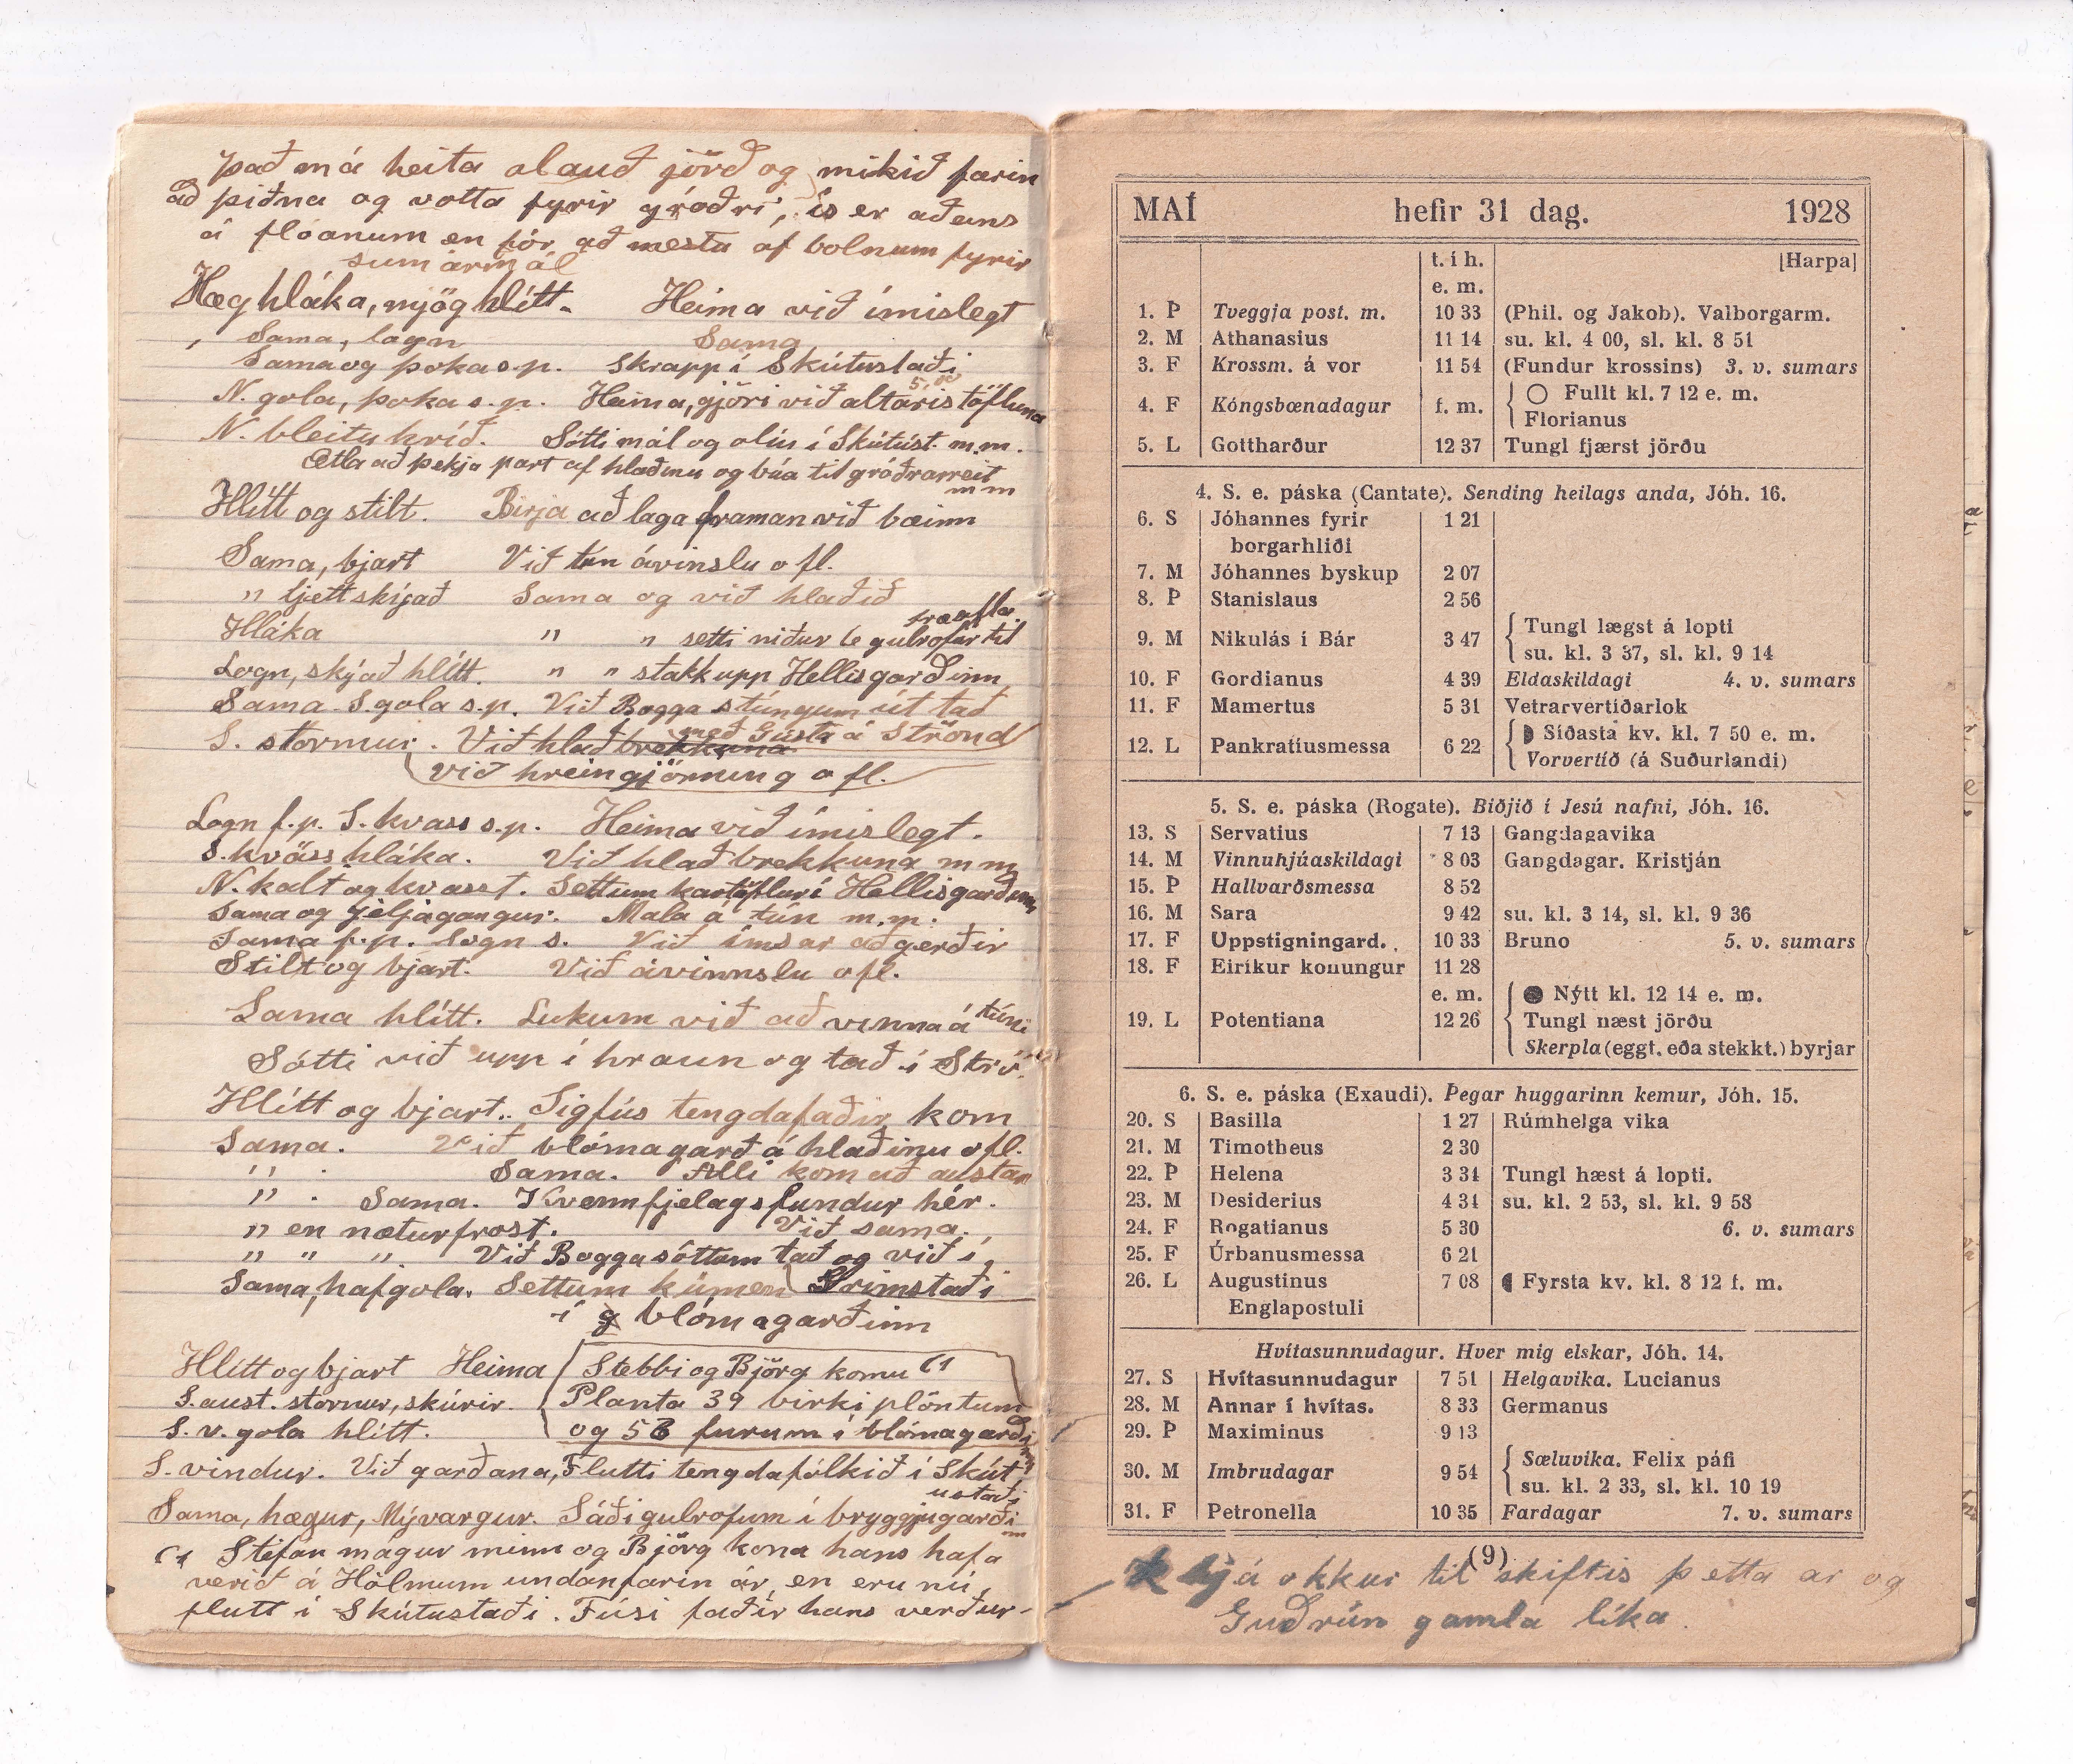 Það má heita alauð jörð og mikið farin
að þiðna og votta fyrir gróðri, ís er aðeins
á flóanum en fór að mestu af bolnum fyrir
sumarmál
Hæg hláka, mjög hlítt. Heima við ímislegt
Sama, logn Sama
Sama og þoka s.p. Skrapp í Skútustaði
N. gola, þoka s.p. Heima, gjöri við altaristöfluna
N. bleituhríð. Sótti mál og olíu í Skútúst. m.m.
Ætla að þekja part af hlaðinu og búa til gróðrarreit
m m
Hlítt og stilt. Birja að laga framan við bæinn
Sama, bjart Við tún ávinslu o fl.
" ljett skíjað Sama og við hlaðið
fræafla.
Hláka " " setti niður 6 gulrofur til
Logn, skýað hlítt. " " stakk upp Hellisgarðinn
Sama - S.gola s.p. Við Bogga stúngum út tað
með Gústa á Strönd
S. stormur. Við hlaðbrekkuna
við hreingjörning o fl.
Logn f.p. S. kvass s.p. Heima við ímislegt.
S. kvöss hláka. Við hlaðbrekkuna m m
N. kalt og kvasst. Settum kartöflur í Hellisgarðinn
Sama og jeljagangur. Mala á tún m.m.
Sama f.p. logn s. Við ímsar aðgerðir
Stilt og bjart. Við ávinnslu o fl.
Sama hlítt. Lukum við að vinna á túni
Sótti við upp í hraun og tað í Strö.
Hlítt og bjart. Sigfús tengdafaðir kom
Sama. Við blómagarð á hlaðinu o fl.
" . Sama. Alli kom að austan
" . Sama. Kvennfjelagsfundur hér.
" en næturfrost. Við sama.
" " " Við Bogga sóttum tað og við í
Sama, hafgola. Settum kúmen Grímstaði
í blómagarðinn
Hlítt og bjart Heima Stebbi og Björg komu
S. aust. stormur, skúrir. Planta 39 birkiplöntum
S. v. gola hlítt. og 58 furum í blómagarðinn
S. vindur. Við garðana, Flutti tengdafólkið í Skút
ustaði
Sama, hægur, Mývargur. Sáði gulrofum í bryggjugarði
nn
Stefan mágur minn og Björg kona hans hafa
verið á Hólmum undanfarin ár, en eru nú,
flutt í Skútustaði. Fúsi faðir hans verður-
MAÍ hefir 31 dag. 1928
t. í h. [Harpa]
e. m.
1. Þ Tveggja post. m. 10 33 (Phil. og Jakob). Valborgarm.
2. M Athanasius 11 14 su. kl. 4 00, sl. kl. 8 51
3. F Krossm. á vor 11 54 (Fundur krossins) 3. v. sumars
4. F Kóngsbænadagur f. m. Fullt kl. 7 12 e. m.
Florianus
5. L Gottharður 12 37 Tungl fjærst jörðu
4. S. e. páska (Cantate). Sending heilags anda, Jóh. 16.
6. S Jóhannes fyrir 1 21
borgarhliði
7. M Jóhannes byskup 2 07
8. Þ Stanislaus 2 56
9. M Nikulás í Bár 3 47 Tungl lægst á lopti
su. kl. 3 37, sl. kl. 9 14
10. F Gordianus 4 39 Eldaskildagi 4. v. sumars
11. F Mamertus 5 31 Vetrarvertíðarlok
12. L Pankratíusmessa 6 22 Síðasta kv. kl. 7 50 e. m.
Vorvertíð (á Suðurlandi)
5. S. e. páska (Rogate). Biðjið í Jesú nafni, Jóh. 16.
13. S Servatius 7 13 Gangdagavika
14. M Vinnuhjúaskildagi 8 03 Gangdagar. Kristján
15. Þ Hallvarðsmessa 8 52
16. M Sara 9 42 su. kl. 3 14, sl. kl. 9 36
17. F Uppstigningard. 10 33 Bruno 5. v. sumars
18. F Eiríkur konungur 11 28
e. m. Nýtt kl. 12 14 e. m.
19. L Potentiana 12 26 Tungl næst jörðu
Skerpla (eggt. eða stekkt.) byrjar
6. S. e. páska (Exaudi). Þegar huggarinn kemur, Jóh. 15.
20. S Basilla 1 27 Rúmhelga vika
21. M Timotheus 2 30
22. Þ Helena 3 34 Tungl hæst á lopti.
23. M Desiderius 4 34 su. kl. 2 53, sl. kl. 9 58
24. F Rogatianus 5 30 6. v. sumars
25. F Úrbanusmessa 6 21
26. L Augustinus 7 08 Fyrsta kv. kl. 8 12 f. m.
Englapostuli
Hvítasunnudagur. Hver mig elskar, Jóh. 14.
27. S Hvítasunnudagur 7 51 Helgavika. Lucianus
28. M Annar í hvítas. 8 33 Germanus
29. Þ Maximinus 9 13
30. M Imbrudagar 9 54 Sæluvika. Felix páfi
su. kl. 2 33, sl. kl. 10 19
31. F Petronella 10 35 Fardagar 7. v. sumars
(9)
hjá okkur til skiftis þetta ar og
Guðrún gamla líka.